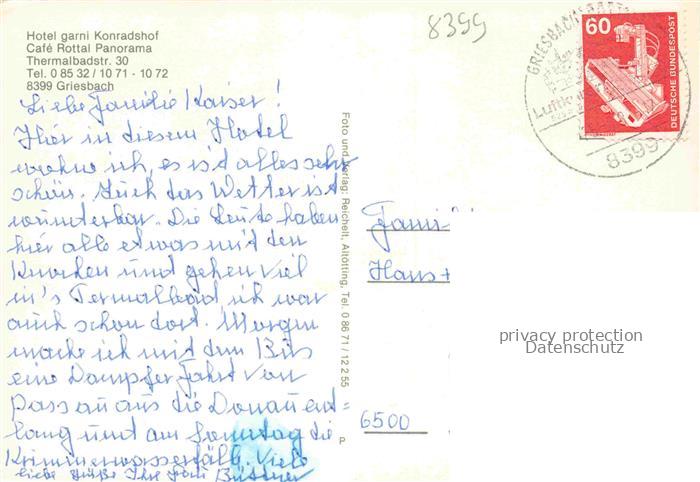 Hotel garni Konradshof
Café Rottal Panorama
Thermalbadstr. 30
Tel. 0 85 32 / 10 71 - 10 72
8399 Griesbach
8399
Liebe Familie Kaiser!
Hier in diesem Hotel
wohne ich, es ist alles sehr
schön. Auch das Wetter ist
wunderbar. Die Leute haben
hier alle etwas mit den
Knochen und gehen viel
in's Termalbad ich war
auch schon dort. Morgen
mache ich mit dem Bus
eine Dampfer Fahrt von
Passau aus die Donau ent=
lang und am Sonntag die
Krimmerwasserfälle. Viele
liebe Grüße Ihre Frau Büttner
Foto und Verlag: Reichelt, Altötting, Tel. 0 86 71 / 12 2 55
P
60
DEUTSCHE BUNDESPOST
GRIESBACH
Luftk
8399
Fami
Hans +
6500
privacy protection
Datenschutz